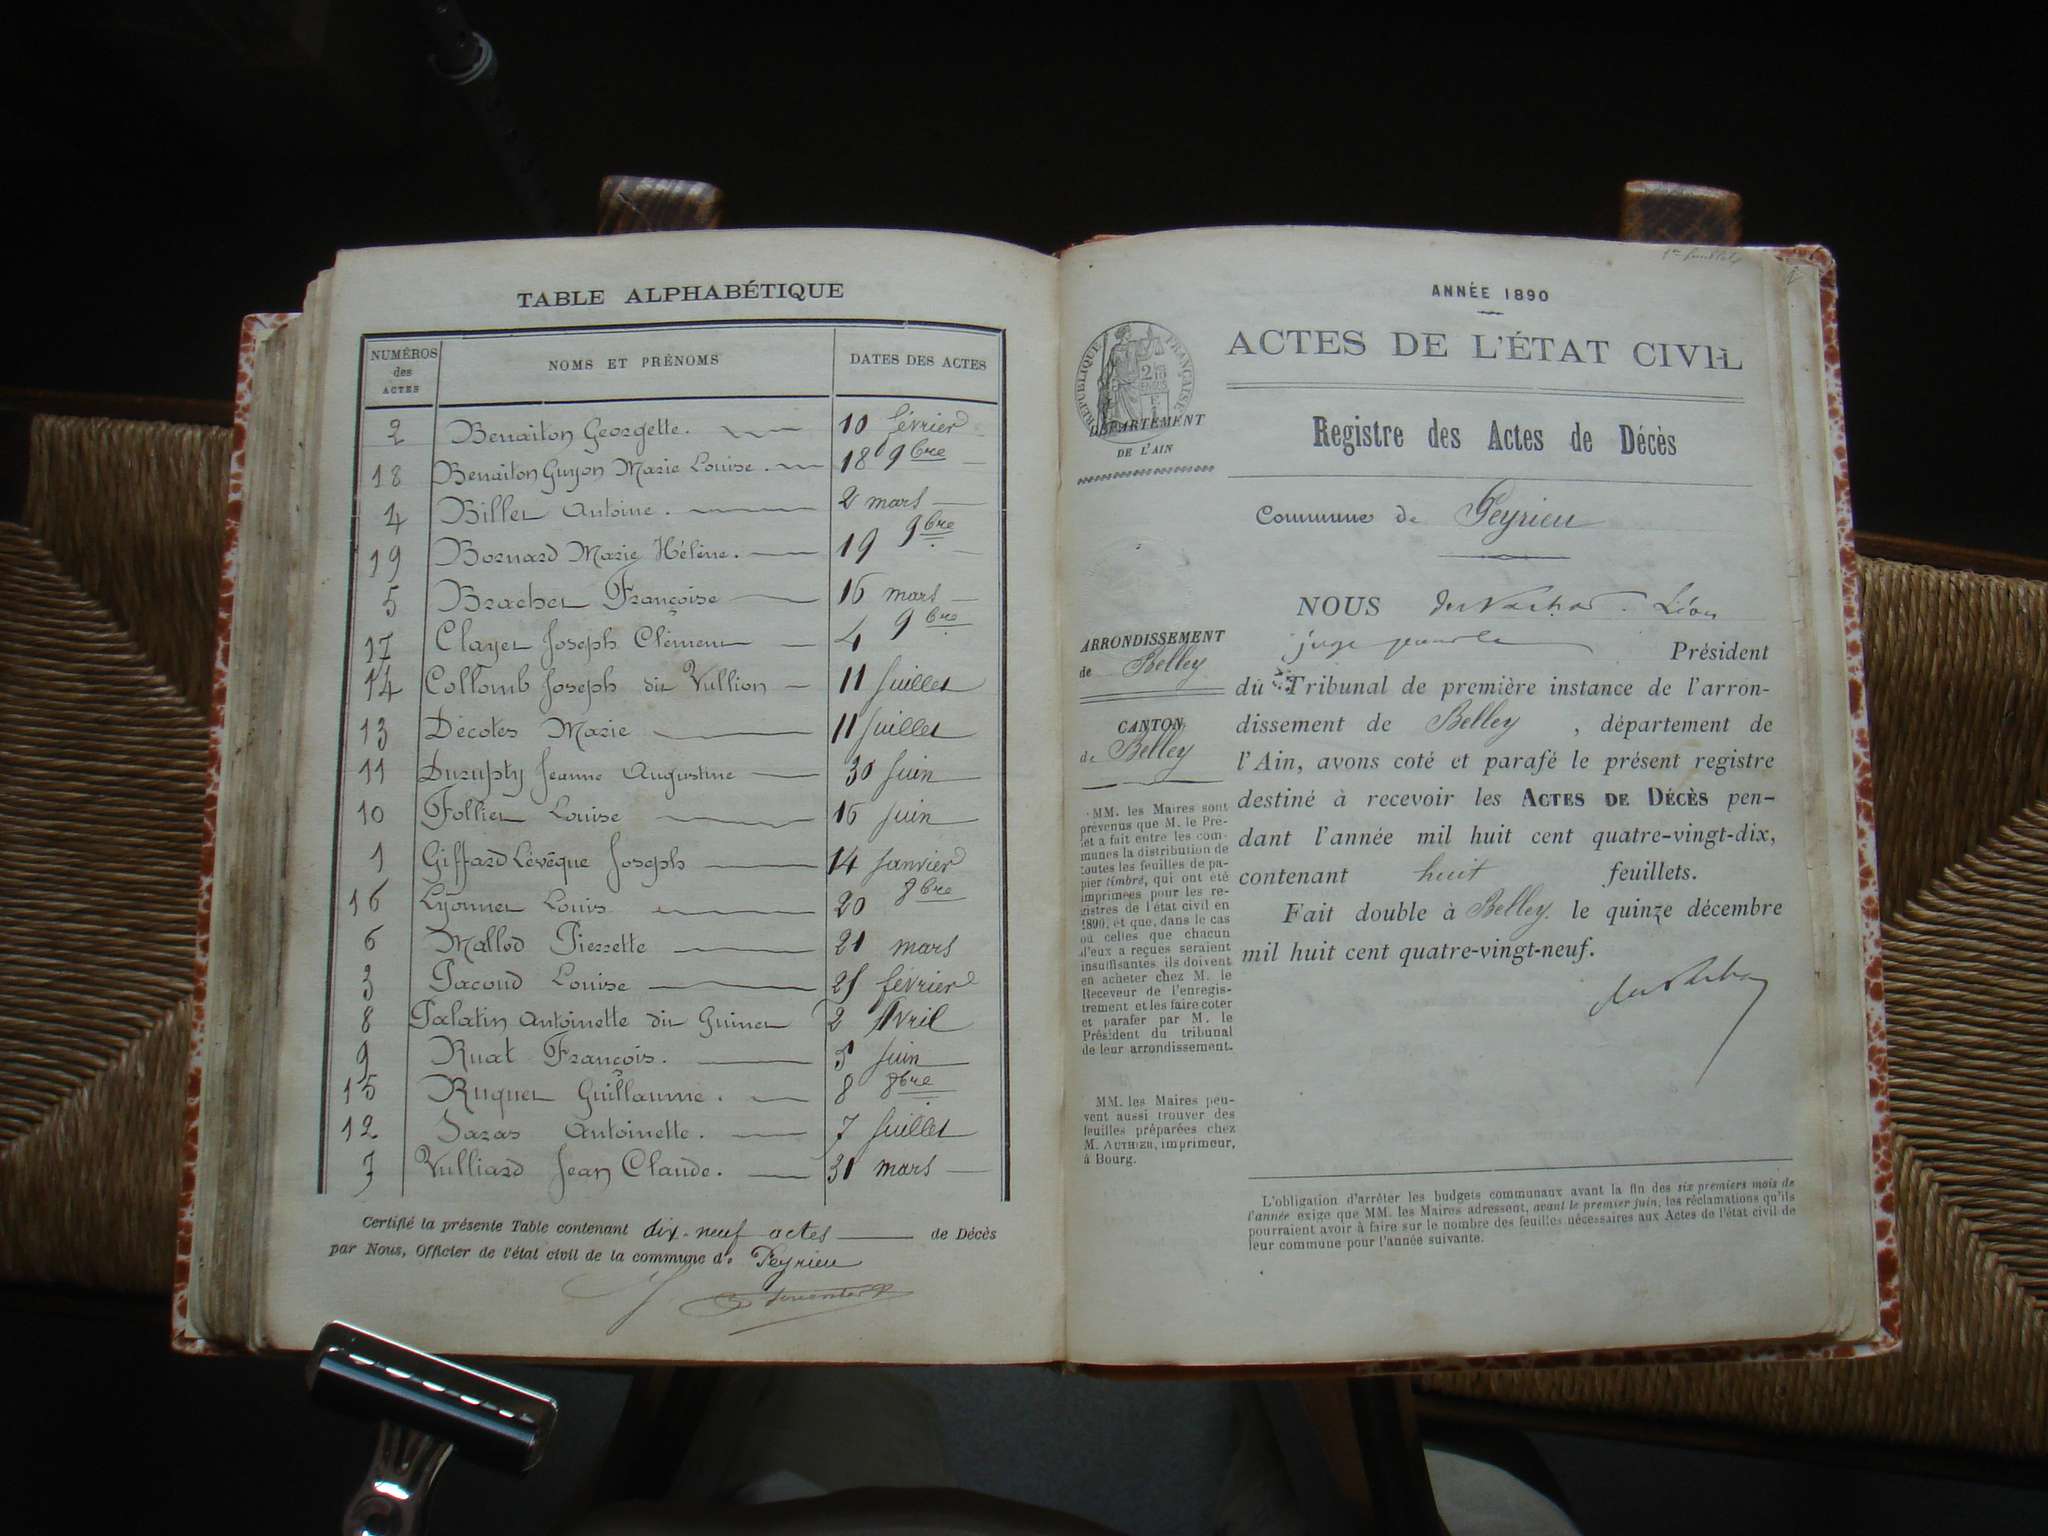 TABLE ALPHABÉTIQUE
NUMÉROS des ACTES NOMS ET PRÉNOMS DATES DES ACTES
2 Benaiton Georgette. 10 février
18 Benaiton Guyon Marie Louise. 18 9bre
4 Billet Antoine. 2 mars
19 Bornard Marie Hélène. 19 9bre
5 Brachet Françoise 16 mars
17 Clayet Joseph Clément 4 9bre
14 Collomb Joseph dit Vullion 11 Juillet
13 Décotes Marie 11 Juillet
11 Durupty Jeanne Augustine 30 Juin
10 Follier Louise 16 Juin
1 Giffard Lévêque Joseph 14 Janvier
16 Lyonnet Louis 20 8bre
6 Mallod Pierrette 21 mars
3 Pacoud Louise février
8 Palatin Antoinette dit Guinet 2 Avril
9 Ruat François. 5 Juin
15 Ruquet Guillaume. 8 8bre
12 Saras Antoinette. 7 Juillet
7 Vulliard Jean Claude. 31 mars
Certifié la présente Table contenant dix-neuf actes de Décès
par Nous, Officier de l'état civil de la commune de Peyrieu
ANNÉE 1890
ACTES DE L'ÉTAT CIVIL
RÉPUBLIQUE FRANÇAISE
DÉPARTEMENT
DE L'AIN
Registre des Actes de Décès
Commune de Peyrieu
ARRONDISSEMENT
de Belley
CANTON
de Belley
MM. les Maires sont
prévenus que M. le Pré-
fet a fait entre les com-
munes la distribution de
toutes les feuilles de pa-
pier timbré, qui ont été
imprimées pour les re-
gistres de l'état civil en
1890, et que, dans le cas
où celles que chacun
d'eux a reçues seraient
insuffisantes, ils doivent
en acheter chez M. le
Receveur de l'enregis-
trement et les faire coter
et parafer par M. le
Président du tribunal
de leur arrondissement.
MM. les Maires peu-
vent aussi trouver des
feuilles préparées chez
M. AUTHIER, imprimeur,
à Bourg.
NOUS Léon
juge Président
du Tribunal de première instance de l'arron-
dissement de Belley , département de
l'Ain, avons coté et parafé le présent registre
destiné à recevoir les ACTES DE DÉCÈS pen-
dant l'année mil huit cent quatre-vingt-dix,
contenant huit feuillets.
Fait double à Belley. le quinze décembre
mil huit cent quatre-vingt-neuf.
L'obligation d'arrêter les budgets communaux avant la fin des six premiers mois de
l'année exige que MM. les Maires adressent, avant le premier juin, les réclamations qu'ils
pourraient avoir à faire sur le nombre des feuilles nécessaires aux Actes de l'état civil de
leur commune pour l'année suivante.